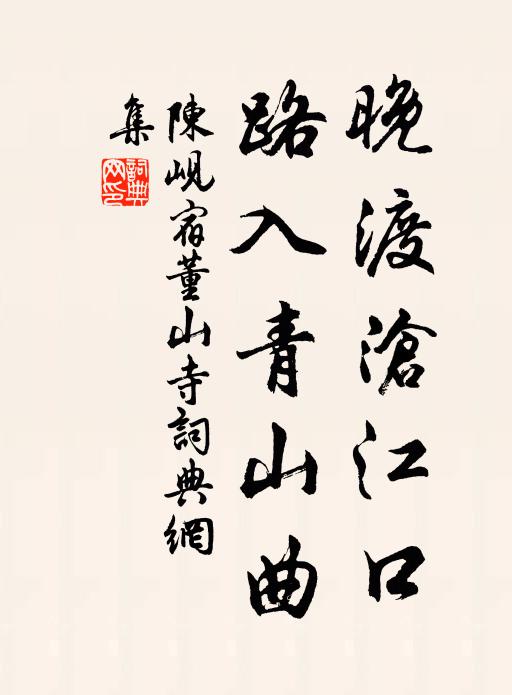 晚渡滄江口
路入青山曲
陳峴宿董山寺詞典網
集
詞典網印